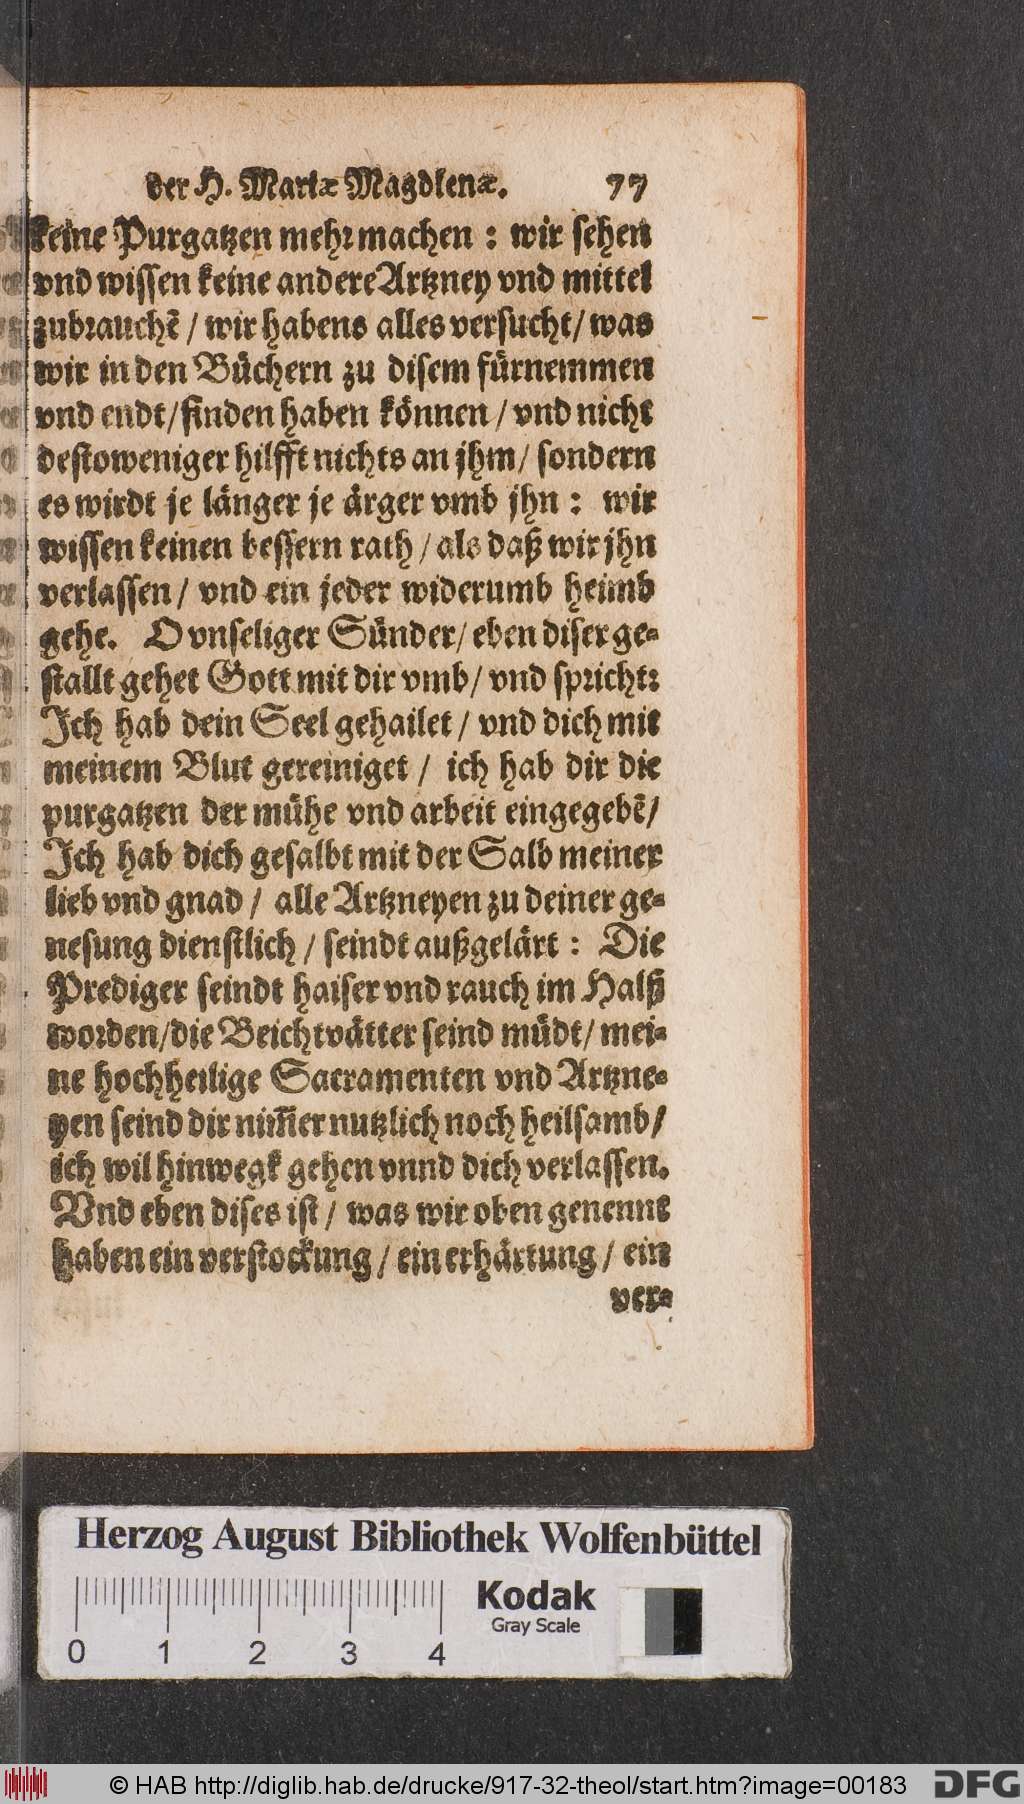 der H. Mariæ Magdlenæ. 77
keine Purgatzen mehr machen : wir sehen
vnd wissen keine andere Artzney vnd mittel
zubrauchē / wir habens alles versucht / was
wir in den Büchern zu disem fürnemmen
vnd endt / finden haben können / vnd nicht
destoweniger hilfft nichts an jhm / sondern
es wirdt je länger je ärger vmb jhn : wir
wissen keinen bessern rath / als daß wir jhn
verlassen / vnd ein jeder widerumb heimb
gehe. O vnseliger Sünder / eben diser ge-
stallt gehet Gott mit dir vmb / vnd spricht:
Ich hab dein Seel gehailet / vnd dich mit
meinem Blut gereiniget / ich hab dir die
purgatzen der mühe vnd arbeit eingegebē /
Ich hab dich gesalbt mit der Salb meiner
lieb vnd gnad / alle Artzneyen zu deiner ge-
nesung dienstlich / seindt außgelärt : Die
Prediger seindt haiser vnd rauch im Halß
worden / die Beichtvätter seind müdt / mei-
ne hochheilige Sacramenten vnd Artzne-
yen seind dir nim̄er nutzlich noch heilsamb /
ich wil hinwegk gehen vnnd dich verlassen.
Vnd eben dises ist / was wir oben genennt
haben ein verstockung / ein erhärtung / ein
ver-
Herzog August Bibliothek Wolfenbüttel
0 1 2 3 4
Kodak
Gray Scale
© HAB http://diglib.hab.de/drucke/917-32-theol/start.htm?image=00183
DFG